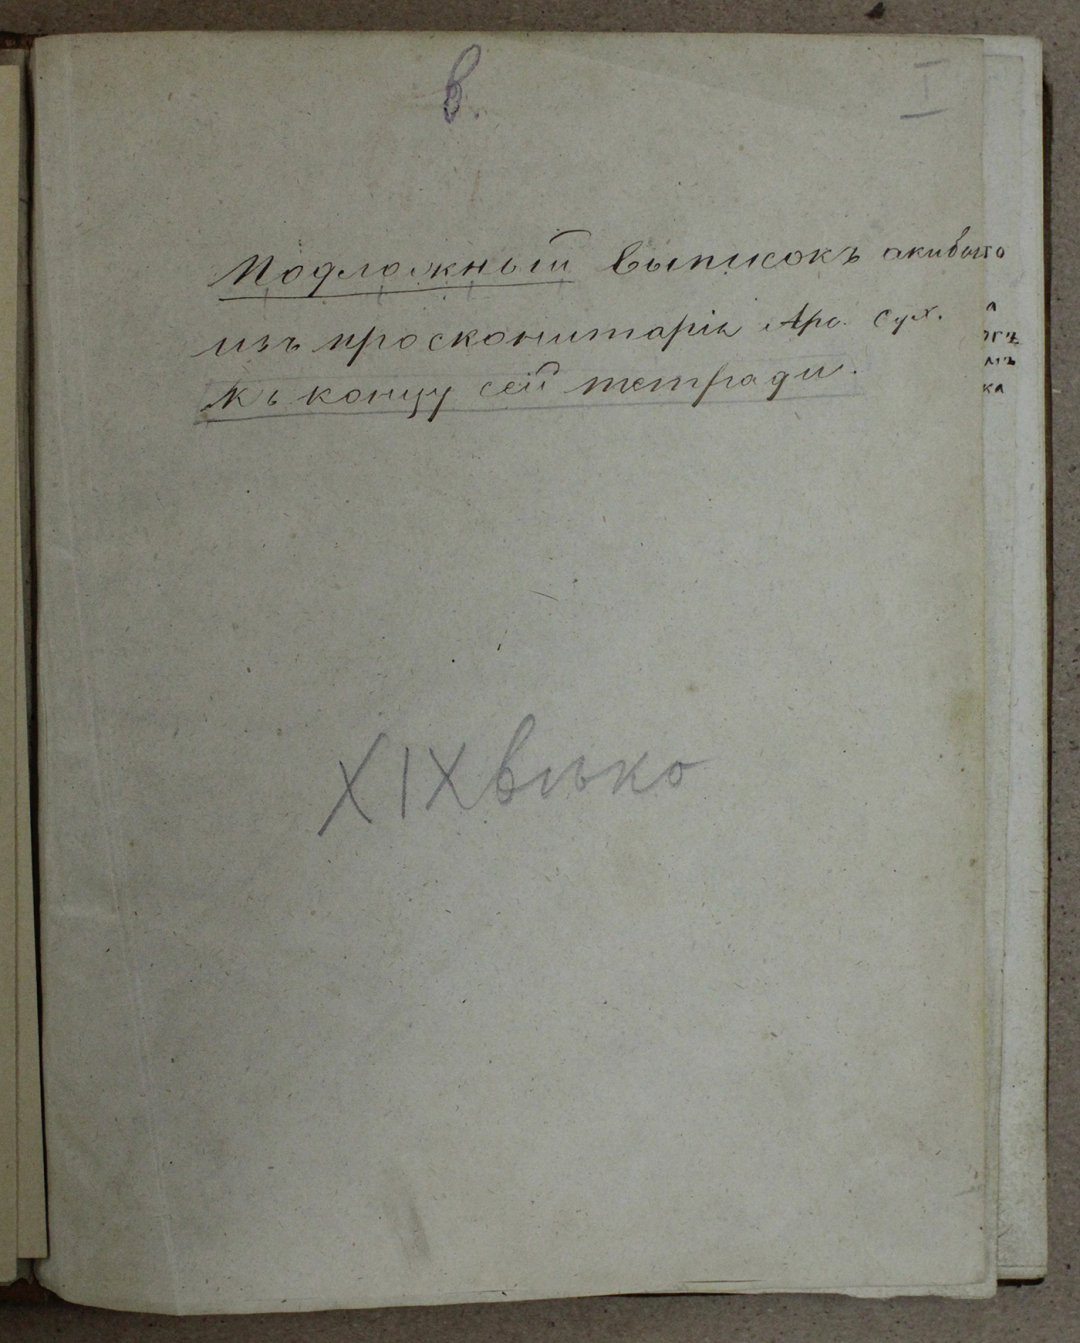 в.
I
Подложный выписокъ акибыто
изъ проскинитарія Арс. Сух.
Къ концу сей тетради.
XIX вѣка